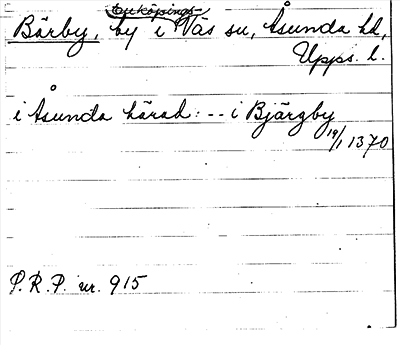 Enköpings-
Bärby, by i Näs sn, Åsunda hd,
Upps. l.
i Åsunda härad: -- i Bjärgby
19/1 1370
P.R.P. nr. 915